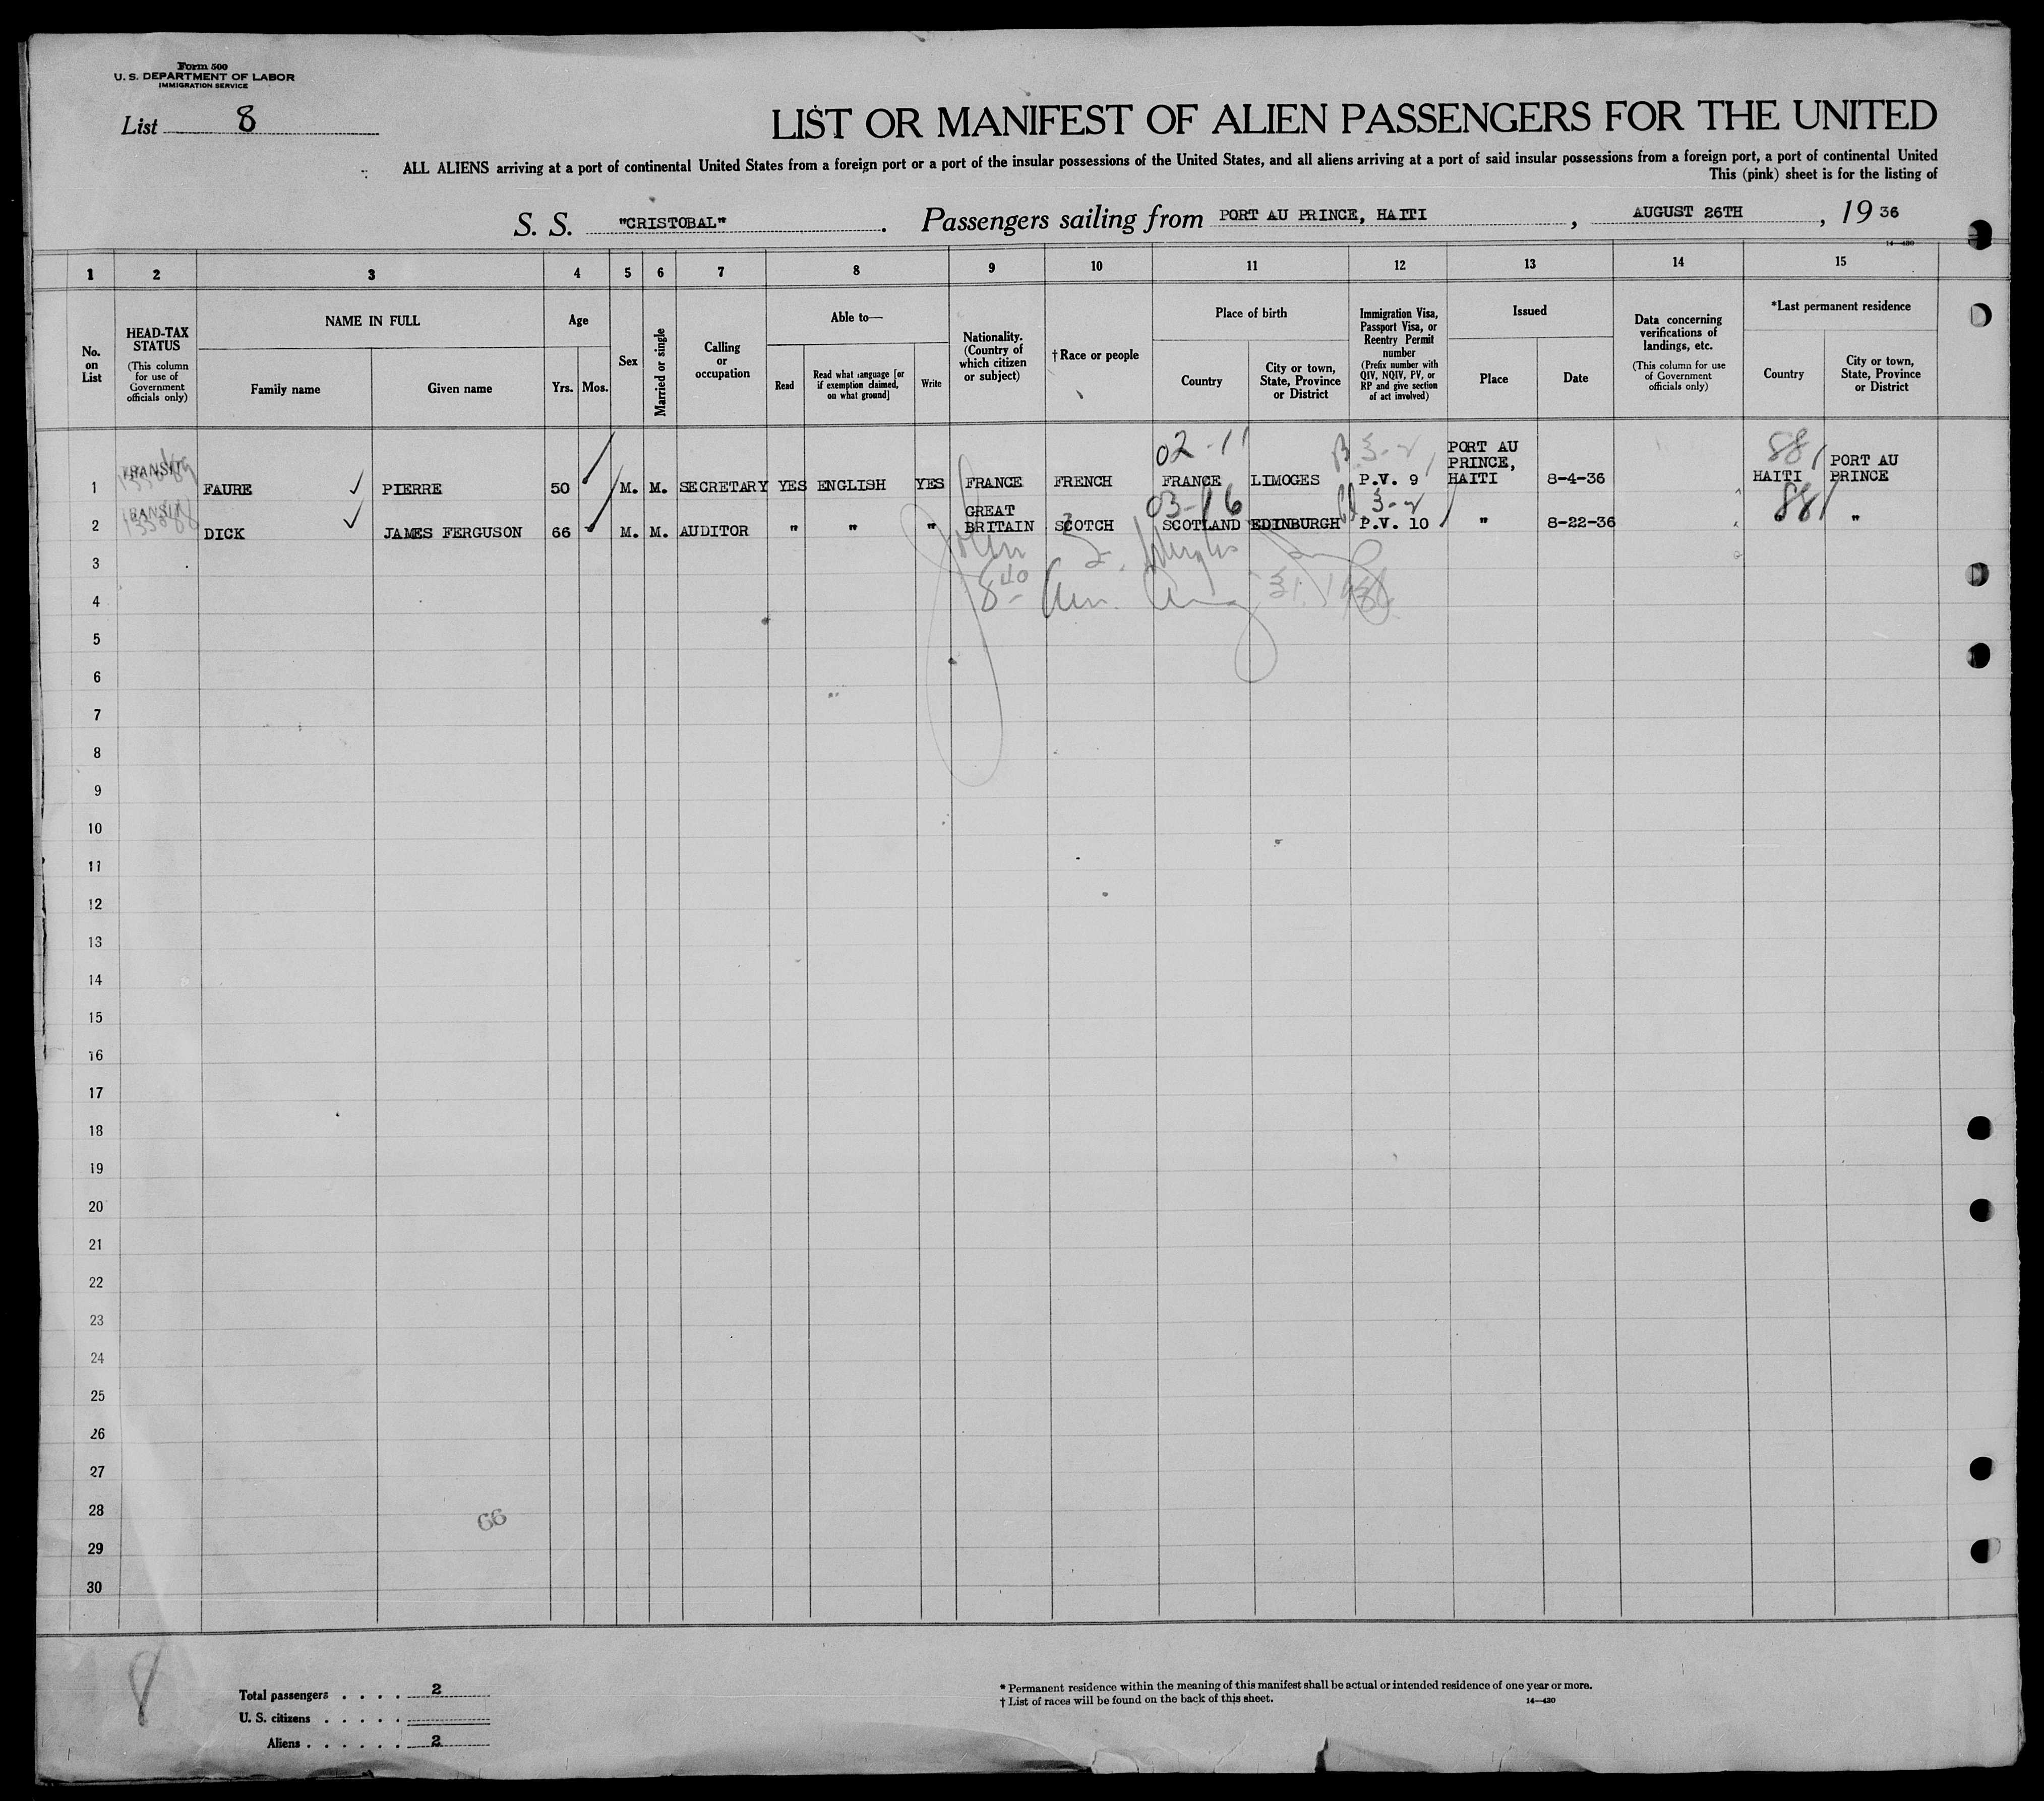 Form 500
U. S. DEPARTMENT OF LABOR
IMMIGRATION SERVICE
List 8
LIST OR MANIFEST OF ALIEN PASSENGERS FOR THE UNITED
ALL ALIENS arriving at a port of continental United States from a foreign port or a port of the insular possessions of the United States, and all aliens arriving at a port of said insular possessions from a foreign port, a port of continental United
This (pink) sheet is for the listing of
S. S. "CRISTOBAL". Passengers sailing from PORT AU PRINCE, HAITI, AUGUST 26TH, 19 36
14—430
1 2 3 4 5 6 7 8 9 10 11 12 13 14 15
No. on List
HEAD-TAX STATUS (This column for use of Government officials only)
NAME IN FULL
Family name
Given name
Age
Yrs.
Mos.
Sex
Married or single
Calling or occupation
Able to—
Read
Read what language [or if exemption claimed, on what ground]
Write
Nationality. (Country of which citizen or subject)
† Race or people
Place of birth
Country
City or town, State, Province or District
Immigration Visa, Passport Visa, or Reentry Permit number (Prefix number with QIV, NQIV, PV, or RP and give section of act involved)
Issued
Place
Date
Data concerning verifications of landings, etc. (This column for use of Government officials only)
*Last permanent residence
Country
City or town, State, Province or District
02-11 3-2 88
1 TRANSIT FAURE PIERRE 50 M. M. SECRETARY YES ENGLISH YES FRANCE FRENCH FRANCE LIMOGES P.V. 9 PORT AU PRINCE, HAITI 8-4-36 HAITI PORT AU PRINCE
03-16 3-2 88
2 TRANSIT DICK JAMES FERGUSON 66 M. M. AUDITOR " " " GREAT BRITAIN SCOTCH SCOTLAND EDINBURGH P.V. 10 " 8-22-36 " "
3 John
4 8 40 31, 1936
5
6
7
8
9
10
11
12
13
14
15
16
17
18
19
20
21
22
23
24
25
26
27
28 66
29
30
8
Total passengers . . . . 2
U. S. citizens . . . . .
Aliens . . . . . . 2
* Permanent residence within the meaning of this manifest shall be actual or intended residence of one year or more.
† List of races will be found on the back of this sheet. 14—430